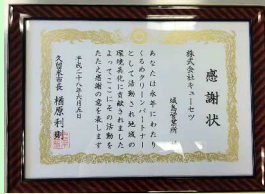 感謝状
株式会社キューセツ
城島営業所
あなたは永年にわたり
くるめクリーンパートナー
として活動され地域の
環境美化に貢献されました
よってここにその活動を
たたえ感謝の意を表します
平成二十八年六月五日
久留米市長 楢原利則